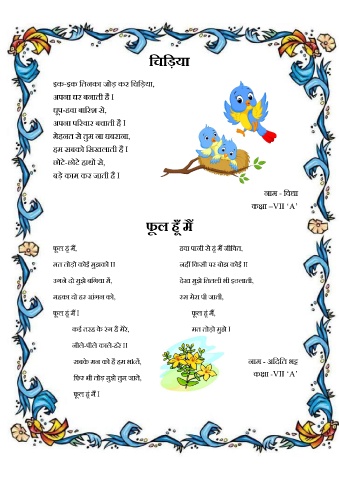 चिड़िया
इक-इक तिनका जोड़ कर चिड़िया,
अपना घर बनाती है I
धूप-हवा बारिश से,
अपना परिवार बचाती है I
मेहनत से तुम ना घबराना,
हम सबको सिखलाती है I
छोटे-छोटे हाथों से,
बड़े काम कर जाती है I
नाम - विद्या
कक्षा –VII ‘A’
फूल हूँ मैं
फूल हूं मैं,
मत तोड़ो कोई मुझको II
उगने दो मुझे बगिया में,
महका दो हर आंगन को,
फूल हूं मैं I
कई तरह के रंग हैं मेरे,
नीले-पीले काले-हरे II
सबके मन को हैं हम भांते,
फिर भी तोड़ मुझे तुम जाते,
फूल हूं मैं I
हवा पानी से हूं मैं जीवित,
नहीं किसी पर बोझ कोई II
देख मुझे तितली भी इठलाती,
रस मेरा पी जाती,
फूल हूं मैं,
मत तोड़ो मुझे I
नाम - अदिति भट्ट
कक्षा -VII ‘A’